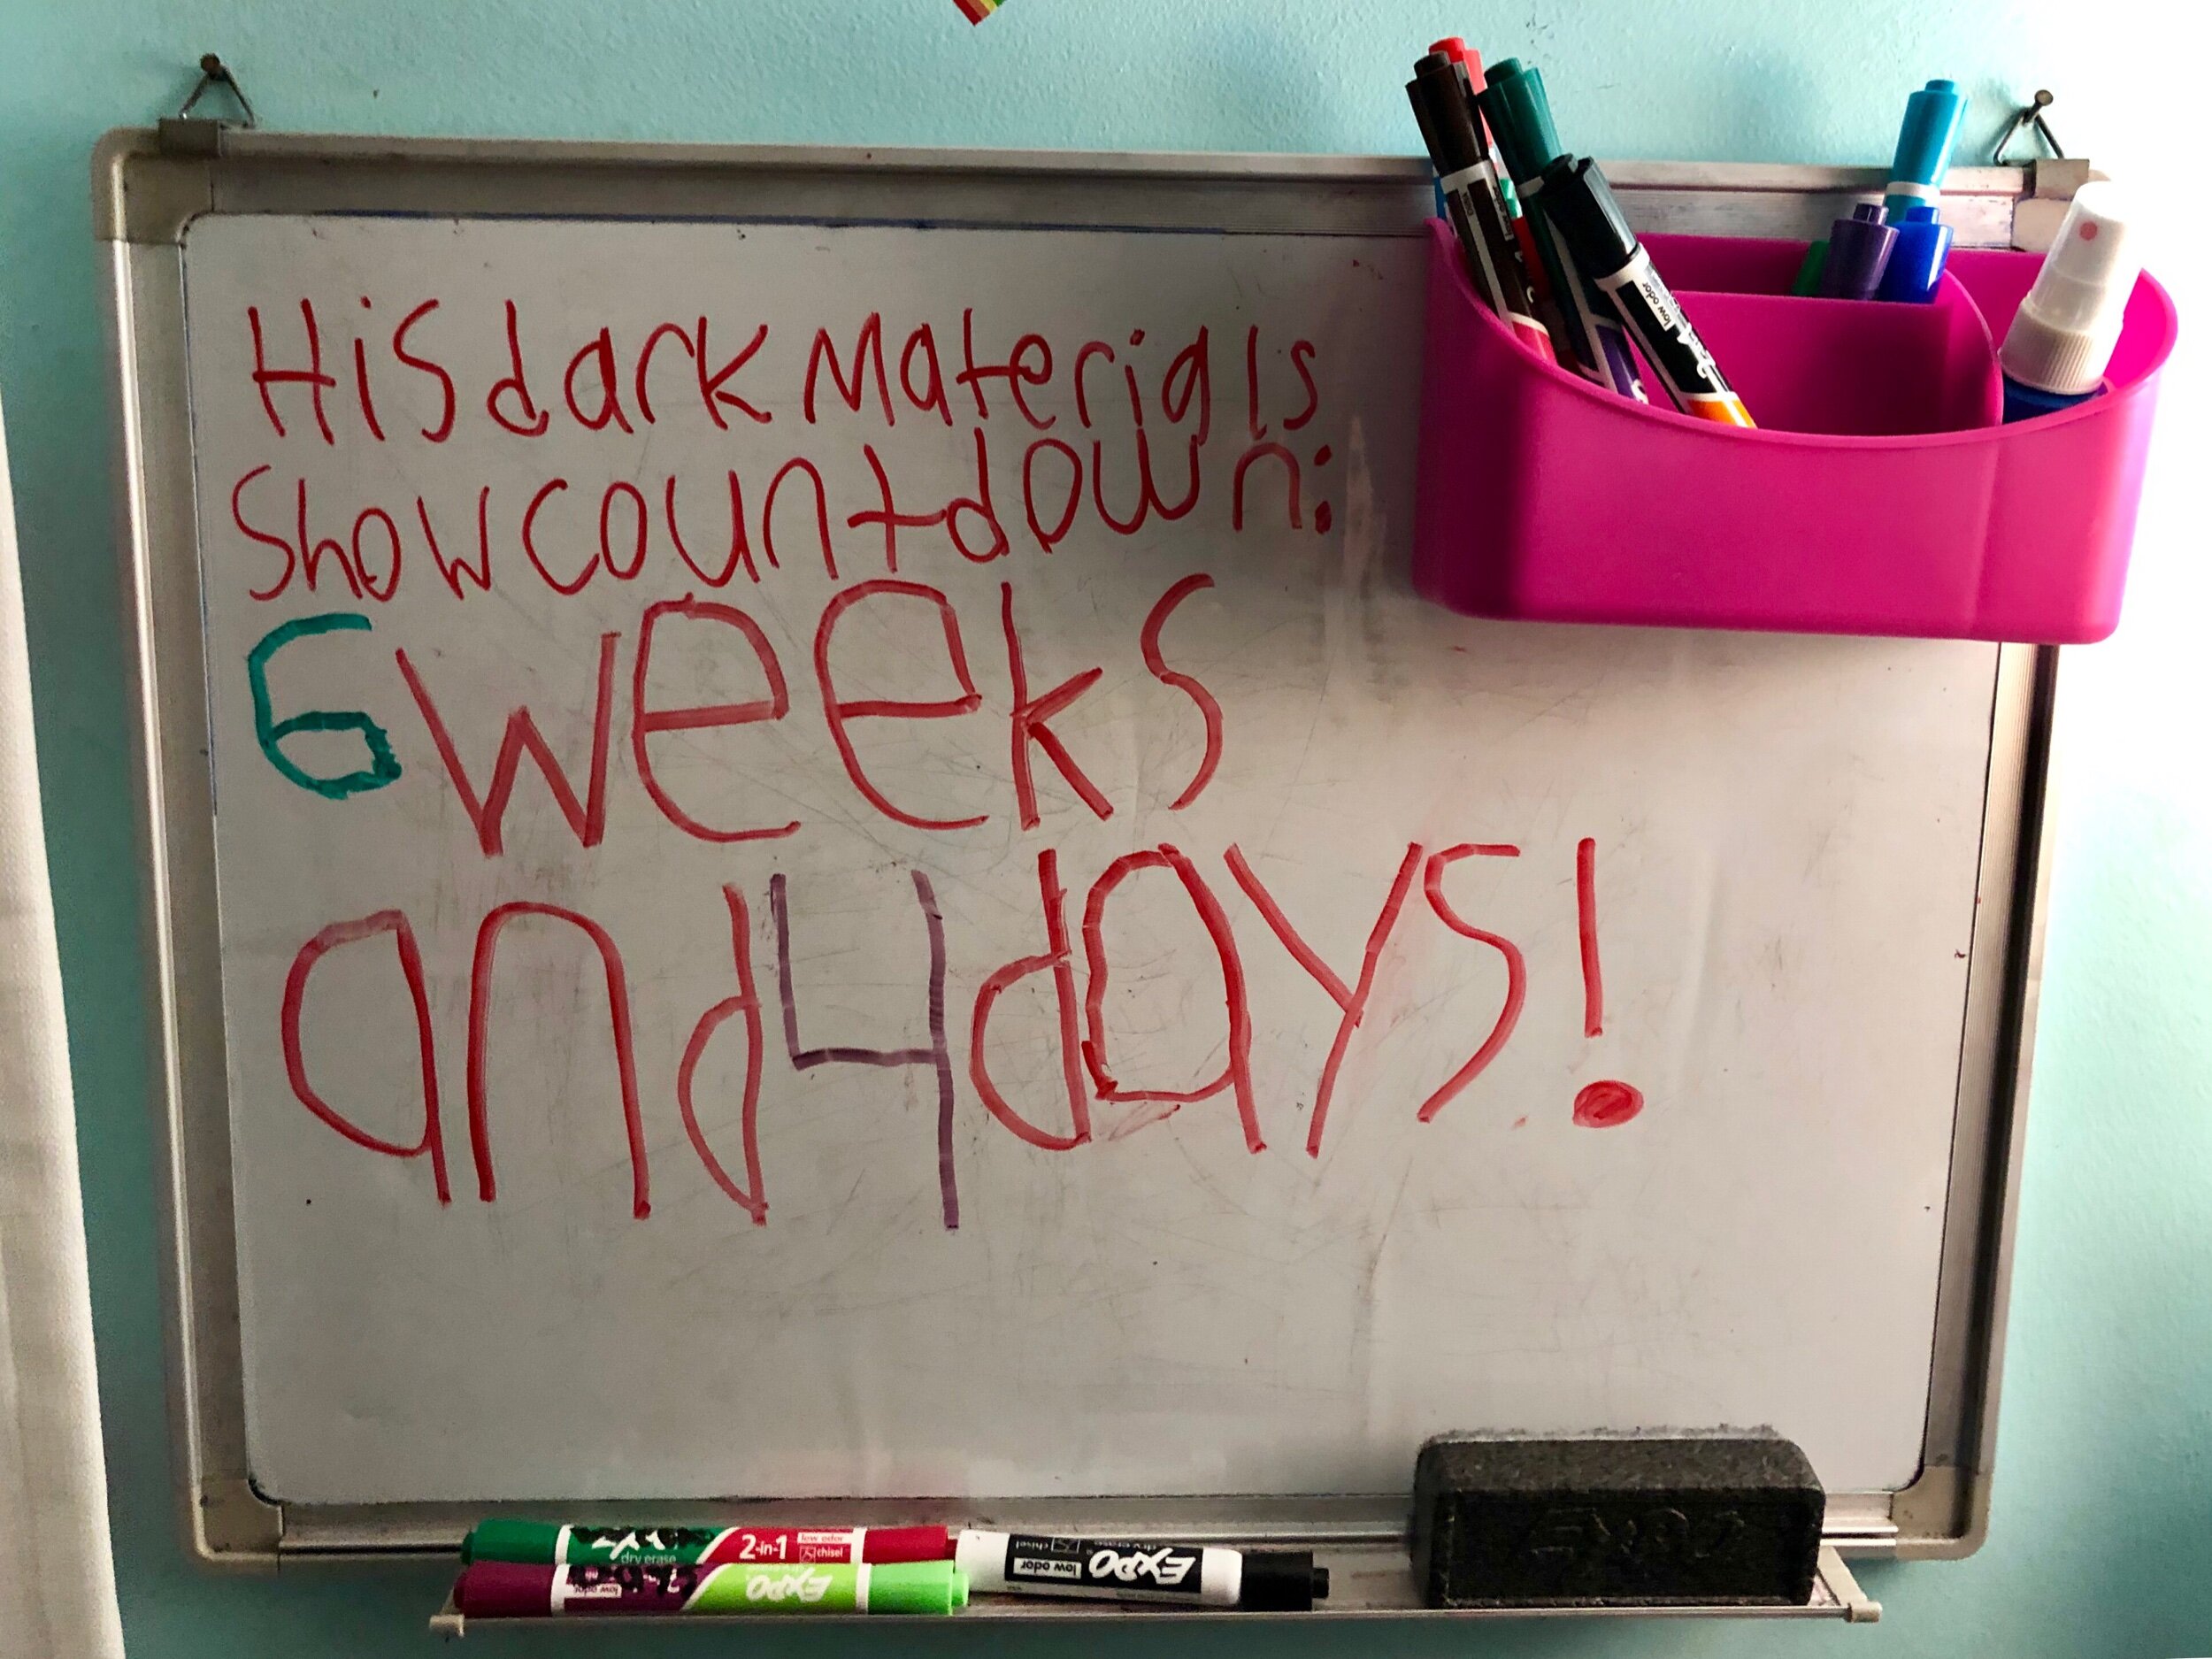 His dark Materials
Show countdown:
6 weeks
and 4 days!
low odor
EXPO
dry erase
2-in-1
low odor
chisel
low odor
EXPO
low odor
EXPO
dry erase
chisel
EXPO